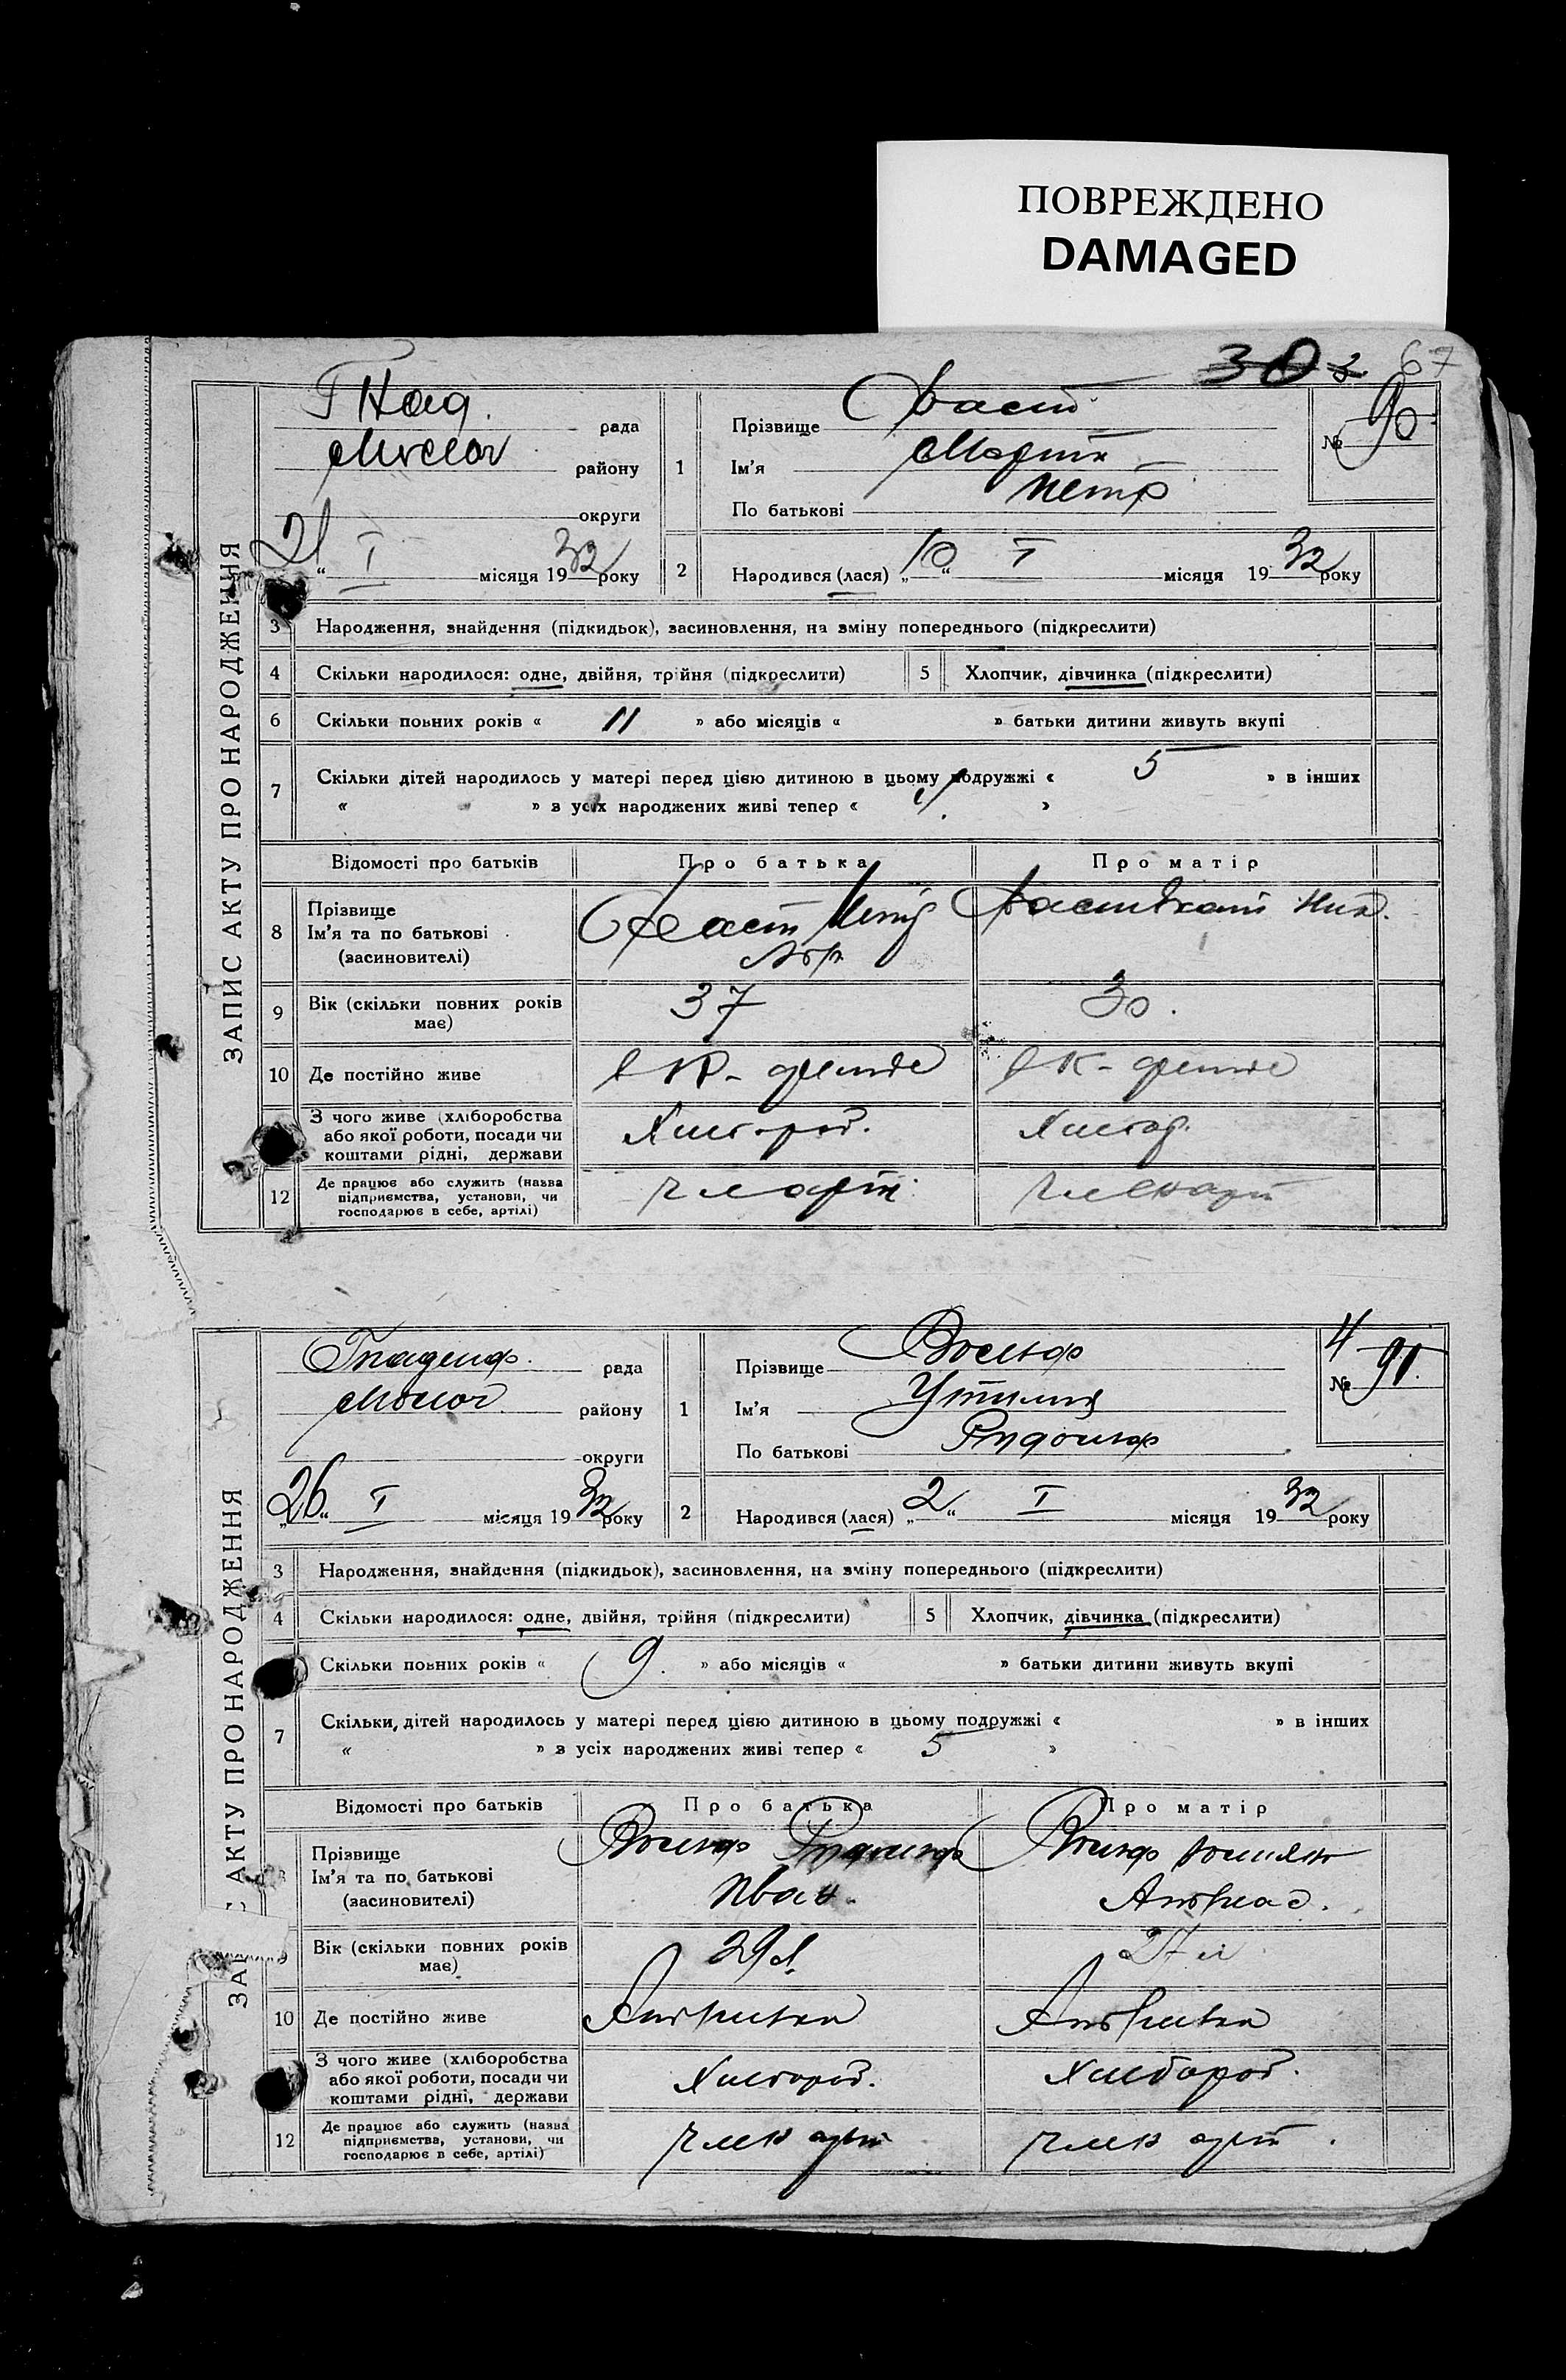 ПОВРЕЖДЕНО
DAMAGED
30 3 67
ЗАПИС АКТУ ПРО НАРОДЖЕННЯ
Гнад. рада
Молоч району
округи
21 “ I місяця 1932 року
1
Прізвище Фаст
Ім'я Марта
По батькові Петр
№ 90
2 Народився (лася) „10“ I місяця 1932 року
3 Народження, знайдення (підкидьок), засиновлення, на зміну попереднього (підкреслити)
4 Скільки народилося: одне, двійня, трійня (підкреслити) 5 Хлопчик, дівчинка (підкреслити)
6 Скільки повних років « 11 » або місяців « » батьки дитини живуть вкупі
7 Скільки дітей народилось у матері перед цією дитиною в цьому подружжі « 5 » в інших
« » з усіх народжених живі тепер « »
Відомості про батьків Про батька Про матір
8 Прізвище
Ім'я та по батькові
(засновителі)
Фаст Петр
Абр
Фаст Ник.
9 Вік (скільки повних років має) 37 30.
10 Де постійно живе
З чого живе (хліборобства
або якої роботи, посади чи
коштами рідні, держави
Хлебороб. Хлебор.
12 Де працює або служить (назва
підприємства, установи, чи
господарює в себе, артілі)
член арт. член арт
ЗАПИС АКТУ ПРО НАРОДЖЕННЯ
Гнаденф. рада
Молоч. району
округи
„26“ I місяця 1932 року
1
Прізвище Вольф
Ім'я
По батькові Рудольф
4
№ 91.
2 Народився (лася) „2“ I місяця 1932 року
3 Народження, знайдення (підкидьок), засиновлення, на зміну попереднього (підкреслити)
4 Скільки народилося: одне, двійня, трійня (підкреслити) 5 Хлопчик, дівчинка (підкреслити)
Скільки повних років « 9. » або місяців « » батьки дитини живуть вкупі
7 Скільки дітей народилось у матері перед цією дитиною в цьому подружжі « » в інших
« » з усіх народжених живі тепер « 5 »
Відомості про батьків Про батька Про матір
Прізвище
Ім'я та по батькові
(засновителі)
Вольф Рудольф
Иван.
Вольф
Андреас.
Вік (скільки повних років має) 29 л. 27 л
10 Де постійно живе
З чого живе (хліборобства
або якої роботи, посади чи
коштами рідні, держави
Хлебороб. Хлебороб.
12 Де працює або служить (назва
підприємства, установи, чи
господарює в себе, артілі)
член арт член арт.